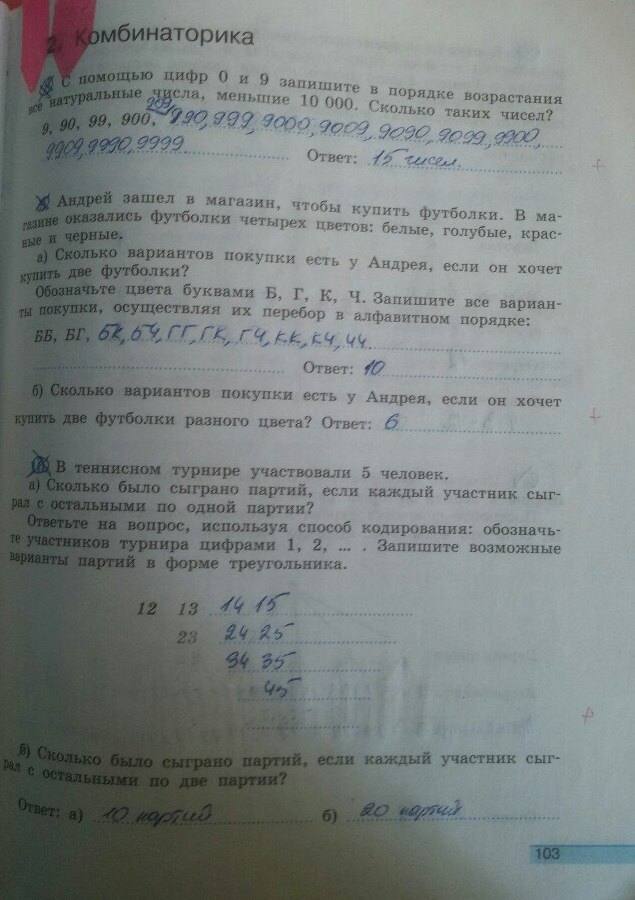 2. Комбинаторика
С помощью цифр 0 и 9 запишите в порядке возрастания
все натуральные числа, меньшие 10 000. Сколько таких чисел?
909,
9, 90, 99, 900, 990, 999, 9000, 9009, 9090, 9099, 9900,
9909, 9990, 9999.
Ответ: 15 чисел.
+
Андрей зашел в магазин, чтобы купить футболки. В ма-
газине оказались футболки четырех цветов: белые, голубые, крас-
ные и черные.
а) Сколько вариантов покупки есть у Андрея, если он хочет
купить две футболки?
Обозначьте цвета буквами Б, Г, К, Ч. Запишите все вариан-
ты покупки, осуществляя их перебор в алфавитном порядке:
ББ, БГ, БК, БЧ, ГГ, ГК, ГЧ, КК, КЧ, ЧЧ.
Ответ: 10
б) Сколько вариантов покупки есть у Андрея, если он хочет
купить две футболки разного цвета? Ответ: 6
+
В теннисном турнире участвовали 5 человек.
а) Сколько было сыграно партий, если каждый участник сыг-
рал с остальными по одной партии?
Ответьте на вопрос, используя способ кодирования: обозначь-
те участников турнира цифрами 1, 2, ... . Запишите возможные
варианты партий в форме треугольника.
12 13 14 15
23 24 25
34 35
45
б) Сколько было сыграно партий, если каждый участник сыг-
рал с остальными по две партии?
Ответ: а) 10 партий б) 20 партий
103